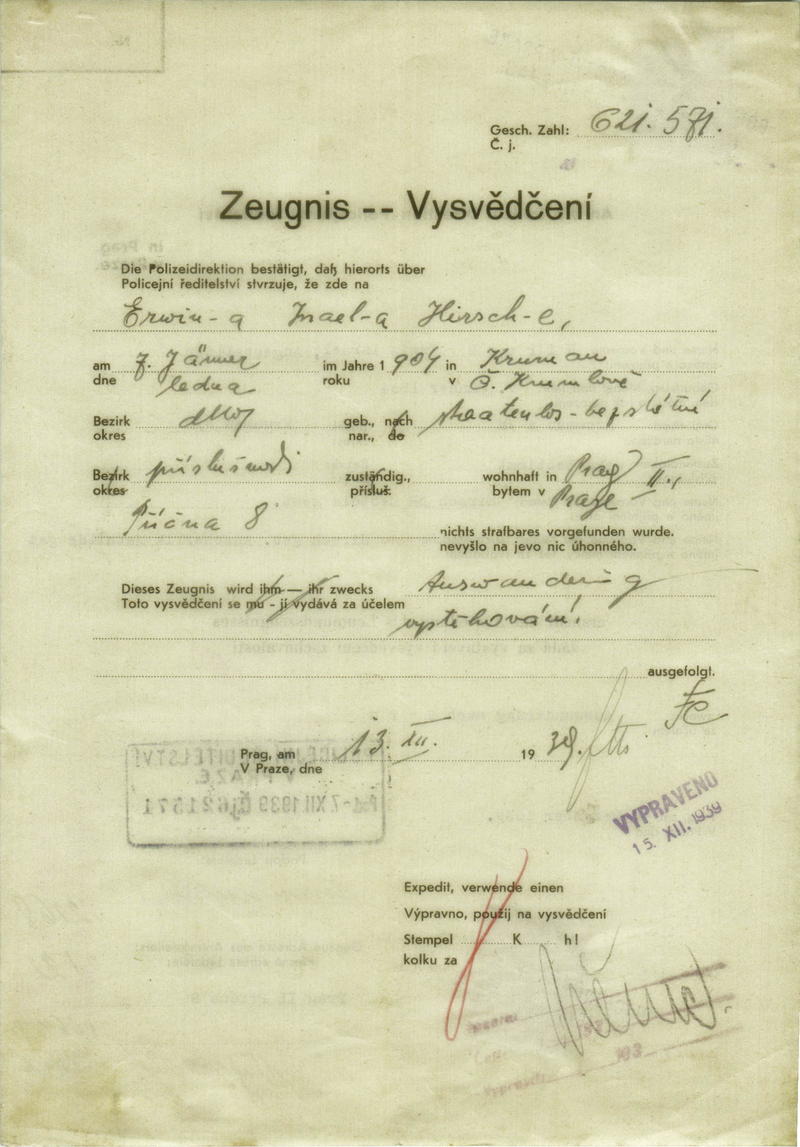 Gesch. Zahl: 621.571.
Č. j.
Zeugnis -- Vysvědčení
Die Polizeidirektion bestätigt, daß hierorts über
Policejní ředitelství stvrzuje, že zde na
Erwin-a Israel-a Hirsch-e,
am 7. Jänner im Jahre 1904 in Kruman
dne ledna roku v Č. Krumlově
Bezirk geb., nach staatenlos-bezstátní
okres dtto nar., do
Bezirk příslušnosti zuständig., wohnhaft in Prag II.,
okres přísluš. bytem v Praze
Příčna 8 nichts strafbares vorgefunden wurde.
nevyšlo na jevo nic úhonného.
Dieses Zeugnis wird ihm — ihr zwecks Auswanderung
Toto vysvědčení se mu - jí vydává za účelem
vystěhování
ausgefolgt.
Prag, am 13. XII. 1939.
V Praze, dne
VYPRAVENO
15. XII. 1939
Expedit, verwende einen
Výpravno, použij na vysvědčení
Stempel K h!
kolku za